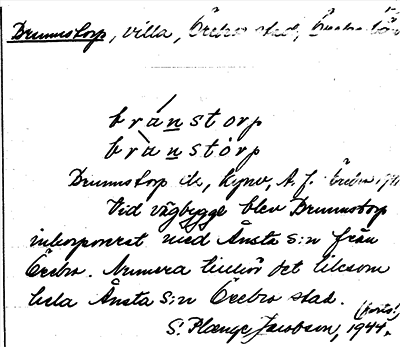 Drumstorp, villa, Örebro stad, Örebro län
bránstorp
brànstòrp
Drumstorp
Vid vägbygge blev Drumstorp
inkorporerat med Ånsta s:n från
Örebro. Numera tillhör det liksom
hela Ånsta s:n Örebro stad.
(forts.)
S. Plænge Jacobson, 1944.